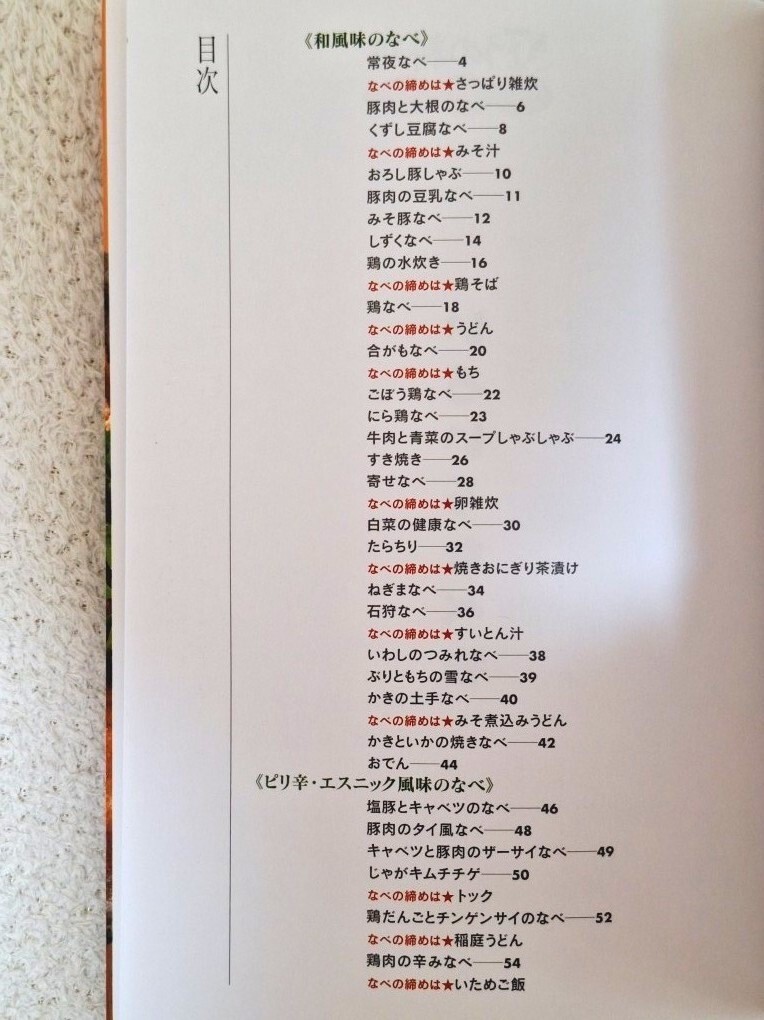 目次
《和風味のなべ》
常夜なべ――4
なべの締めは★さっぱり雑炊
豚肉と大根のなべ――6
くずし豆腐なべ――8
なべの締めは★みそ汁
おろし豚しゃぶ――10
豚肉の豆乳なべ――11
みそ豚なべ――12
しずくなべ――14
鶏の水炊き――16
なべの締めは★鶏そば
鶏なべ――18
なべの締めは★うどん
合がもなべ――20
なべの締めは★もち
ごぼう鶏なべ――22
にら鶏なべ――23
牛肉と青菜のスープしゃぶしゃぶ――24
すき焼き――26
寄せなべ――28
なべの締めは★卵雑炊
白菜の健康なべ――30
たらちり――32
なべの締めは★焼きおにぎり茶漬け
ねぎまなべ――34
石狩なべ――36
なべの締めは★すいとん汁
いわしのつみれなべ――38
ぶりともちの雪なべ――39
かきの土手なべ――40
なべの締めは★みそ煮込みうどん
かきといかの焼きなべ――42
おでん――44
《ピリ辛・エスニック風味のなべ》
塩豚とキャベツのなべ――46
豚肉のタイ風なべ――48
キャベツと豚肉のザーサイなべ――49
じゃがキムチチゲ――50
なべの締めは★トック
鶏だんごとチンゲンサイのなべ――52
なべの締めは★稲庭うどん
鶏肉の辛みなべ――54
なべの締めは★いためご飯